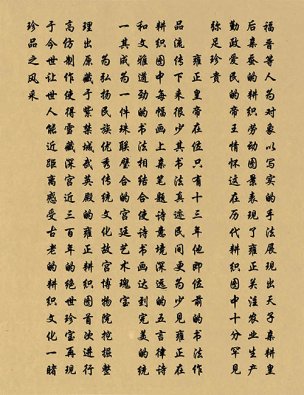 福晋等人为对象以写实的手法展现出天子亲耕皇
后亲蚕的耕织劳动图景表现了雍正关注农业生产
勤政爱民的帝王情怀这在历代耕织图中十分罕见
弥足珍贵
雍正皇帝在位只有十三年他即位前的书法作
品流传下来很少其书法真迹民间更为少见雍正在
耕织图中每幅画上亲笔题诗意境深远的五言律诗
和文雅遒劲的书法相结合使诗书画达到完美的统
一其成为一件珠联璧合的宫廷艺术瑰宝
为弘扬民族优秀传统文化故宫博物院挖掘整
理出原藏于紫禁城武英殿的雍正耕织图首次进行
高仿制作使得雪藏深宫近三百年的绝世珍宝再现
于今世让世人能近距离感受古老的耕织文化一睹
珍品之风采